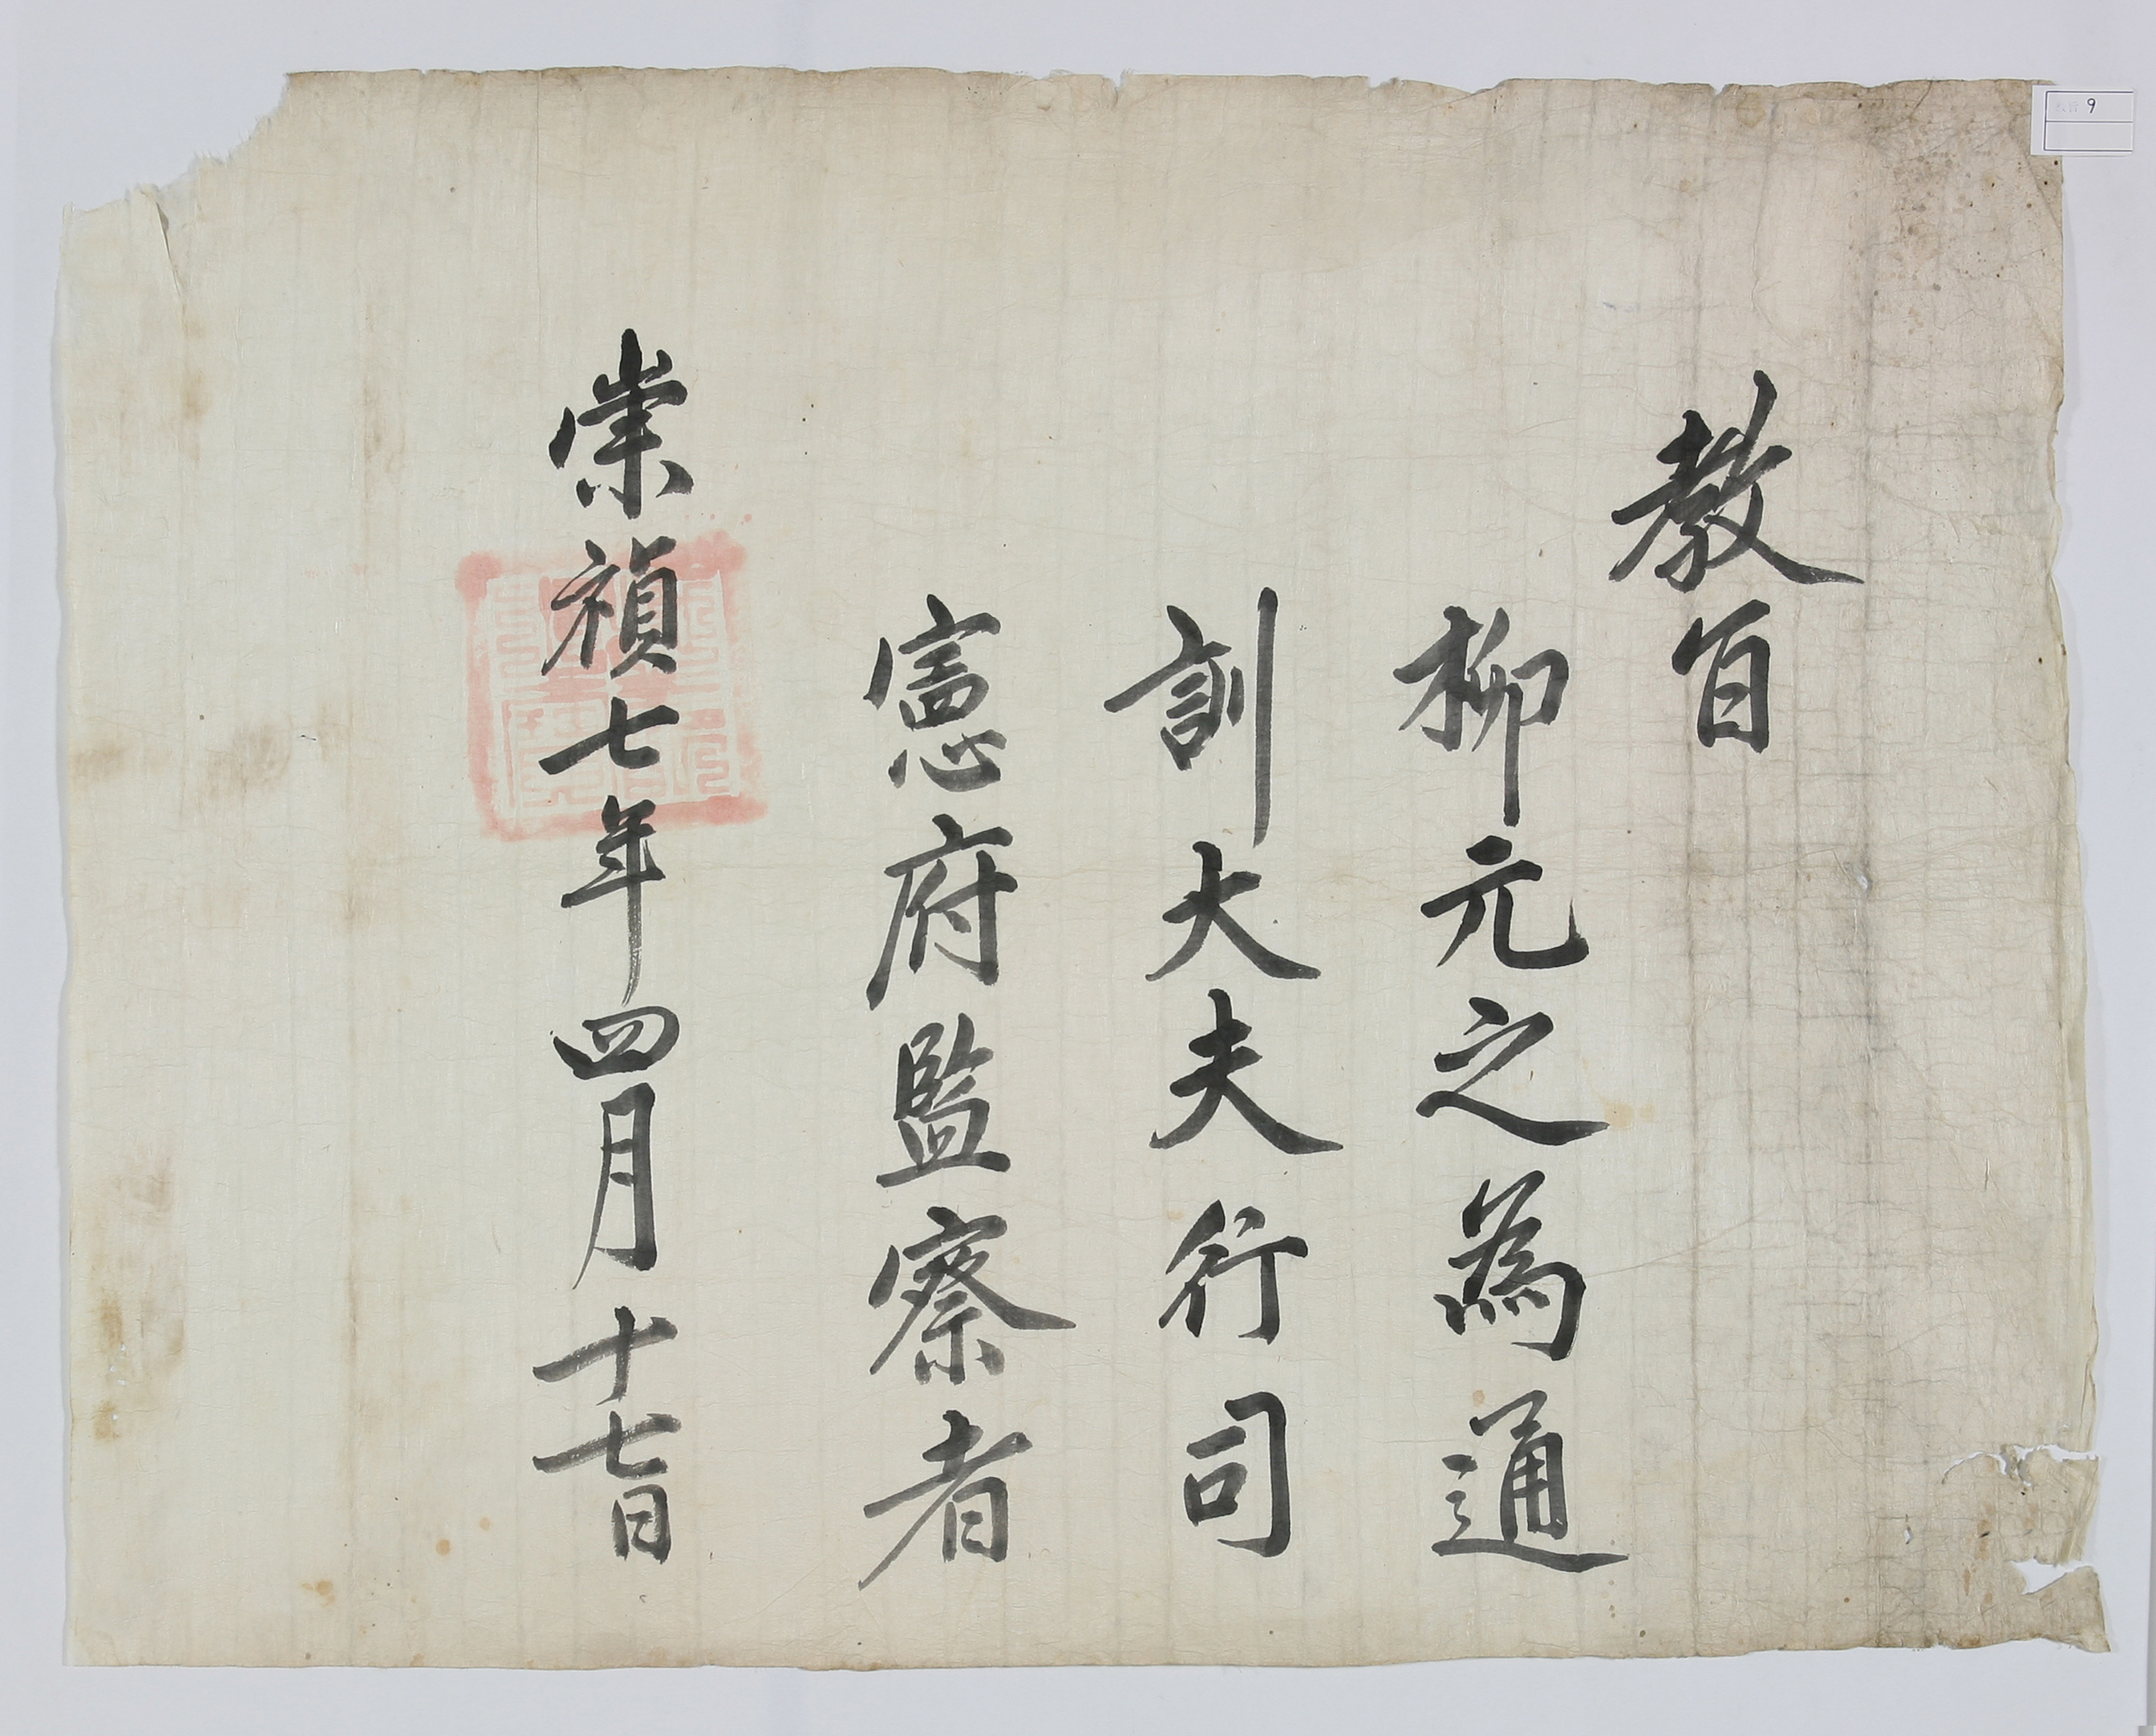 教旨
柳元之為通
訓大夫行司
憲府監察者
崇禎七年四月十七日
9